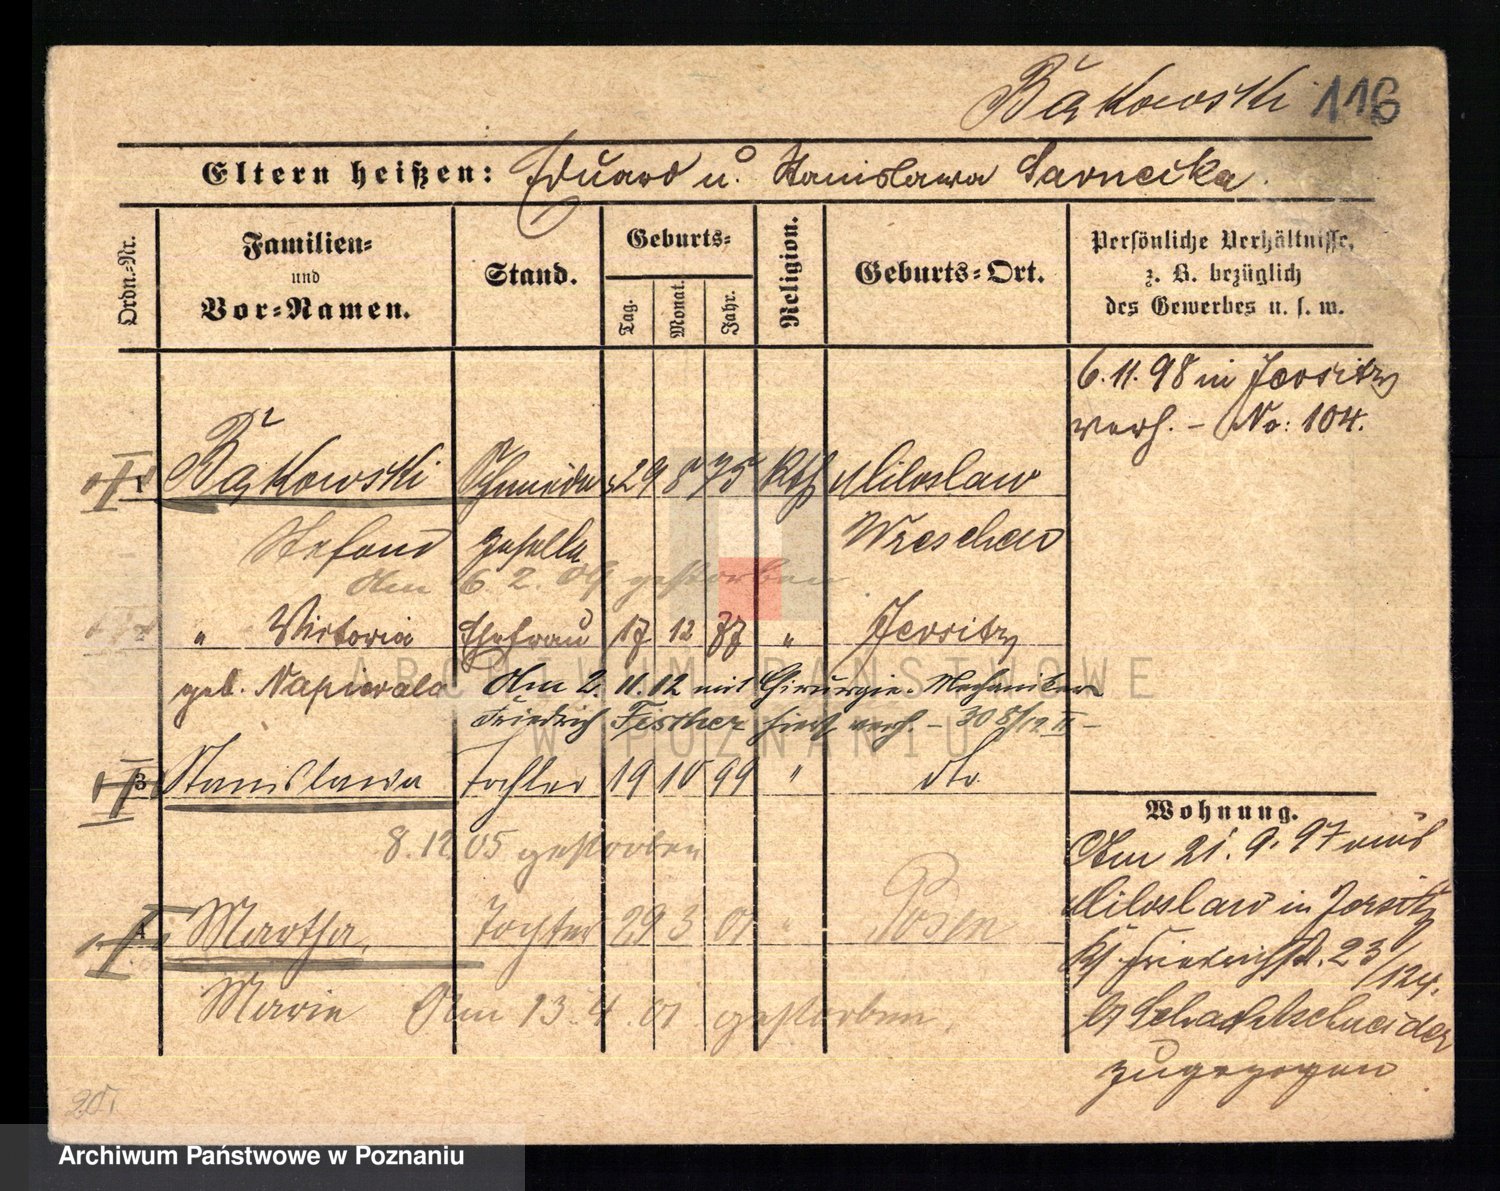 Bąkowski 116
Eltern heißen: Eduard u. Stanislawa Sarnecka
Ordn.-Nr.
Familien- und Vor-Namen.
Stand.
Geburts-
Tag. Monat. Jahr.
Religion.
Geburts-Ort.
Persönliche Verhältnisse,
z. B. bezüglich
des Gewerbes u. s. w.
6. 11. 98 in Jersitz
verh. - No: 104.
1 Bąkowski Schmiede 29 8 75 Kth Miloslaw
Stefan geselle Wreschen
Am 6 2. 09 gestorben
2 " Victoria Ehefrau 17 12 77 " Jersitz
geb. Napierala Am 2. 11. 12 mit Chirurgie-Mechaniker
Friedrich Fischer hier verh. - 308/12 II -
3 Stanislawa Tochter 19 10 99 " dto
8. 12. 05 gestorben
4 Martha, Tochter 29 3 01 " Posen
Marie Am 13. 4. 01 gestorben.
Wohnung.
Am 21. 9. 97 aus
Miloslaw in Jersitz
Friedrichstr. 23/124.
b/ Schachtschneider
zugezogen
20.
ARCHIWUM PAŃSTWOWE
W POZNANIU
Archiwum Państwowe w Poznaniu